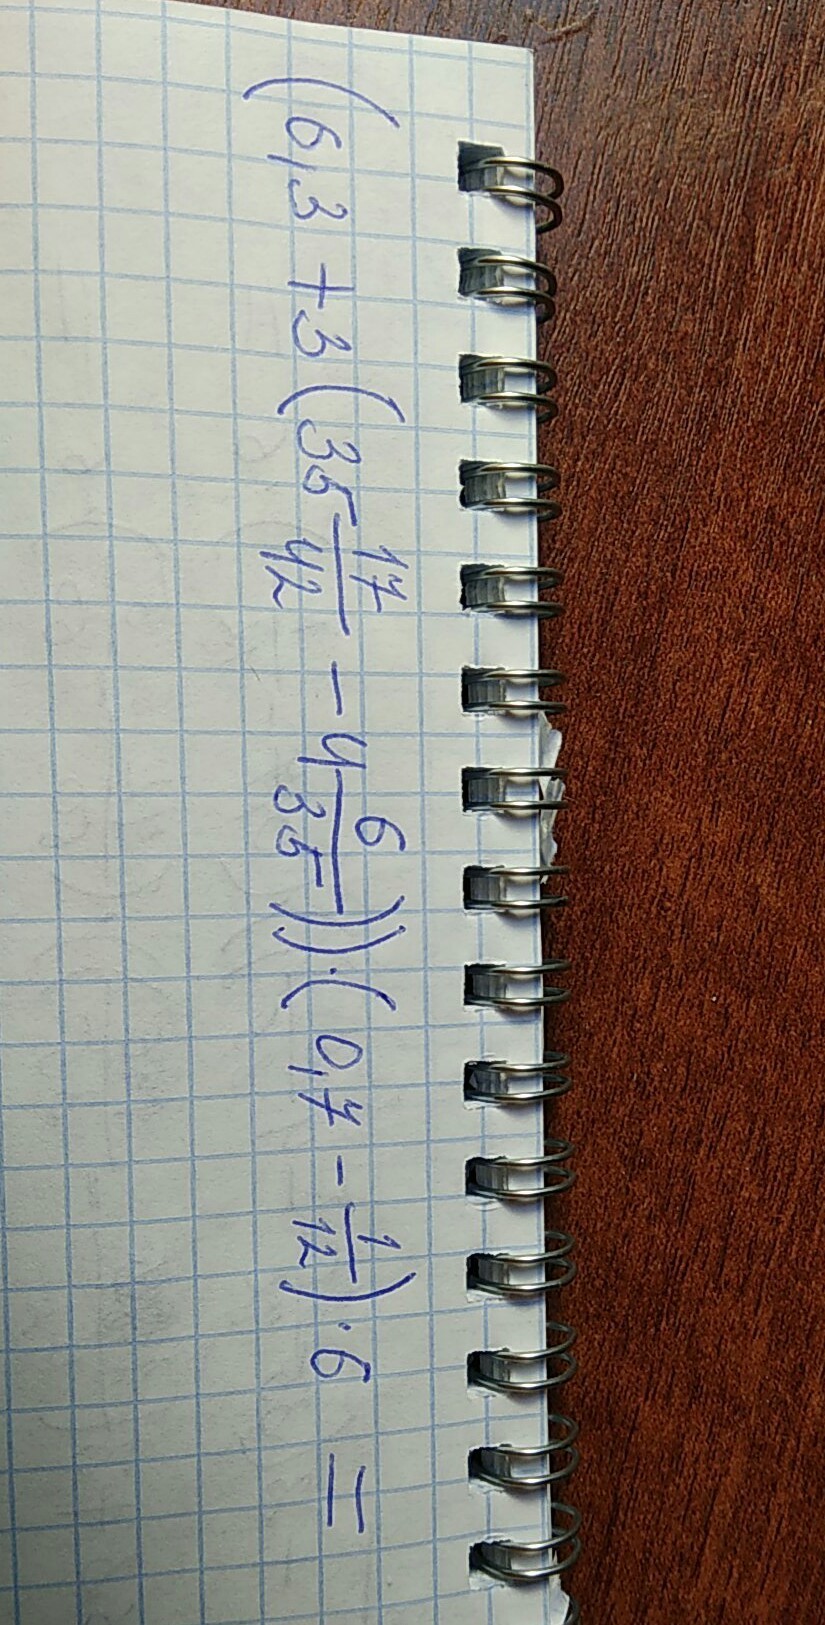 (6,3 + 3(35 17/42 - 4 6/35)) · (0,7 - 1/12) · 6 =